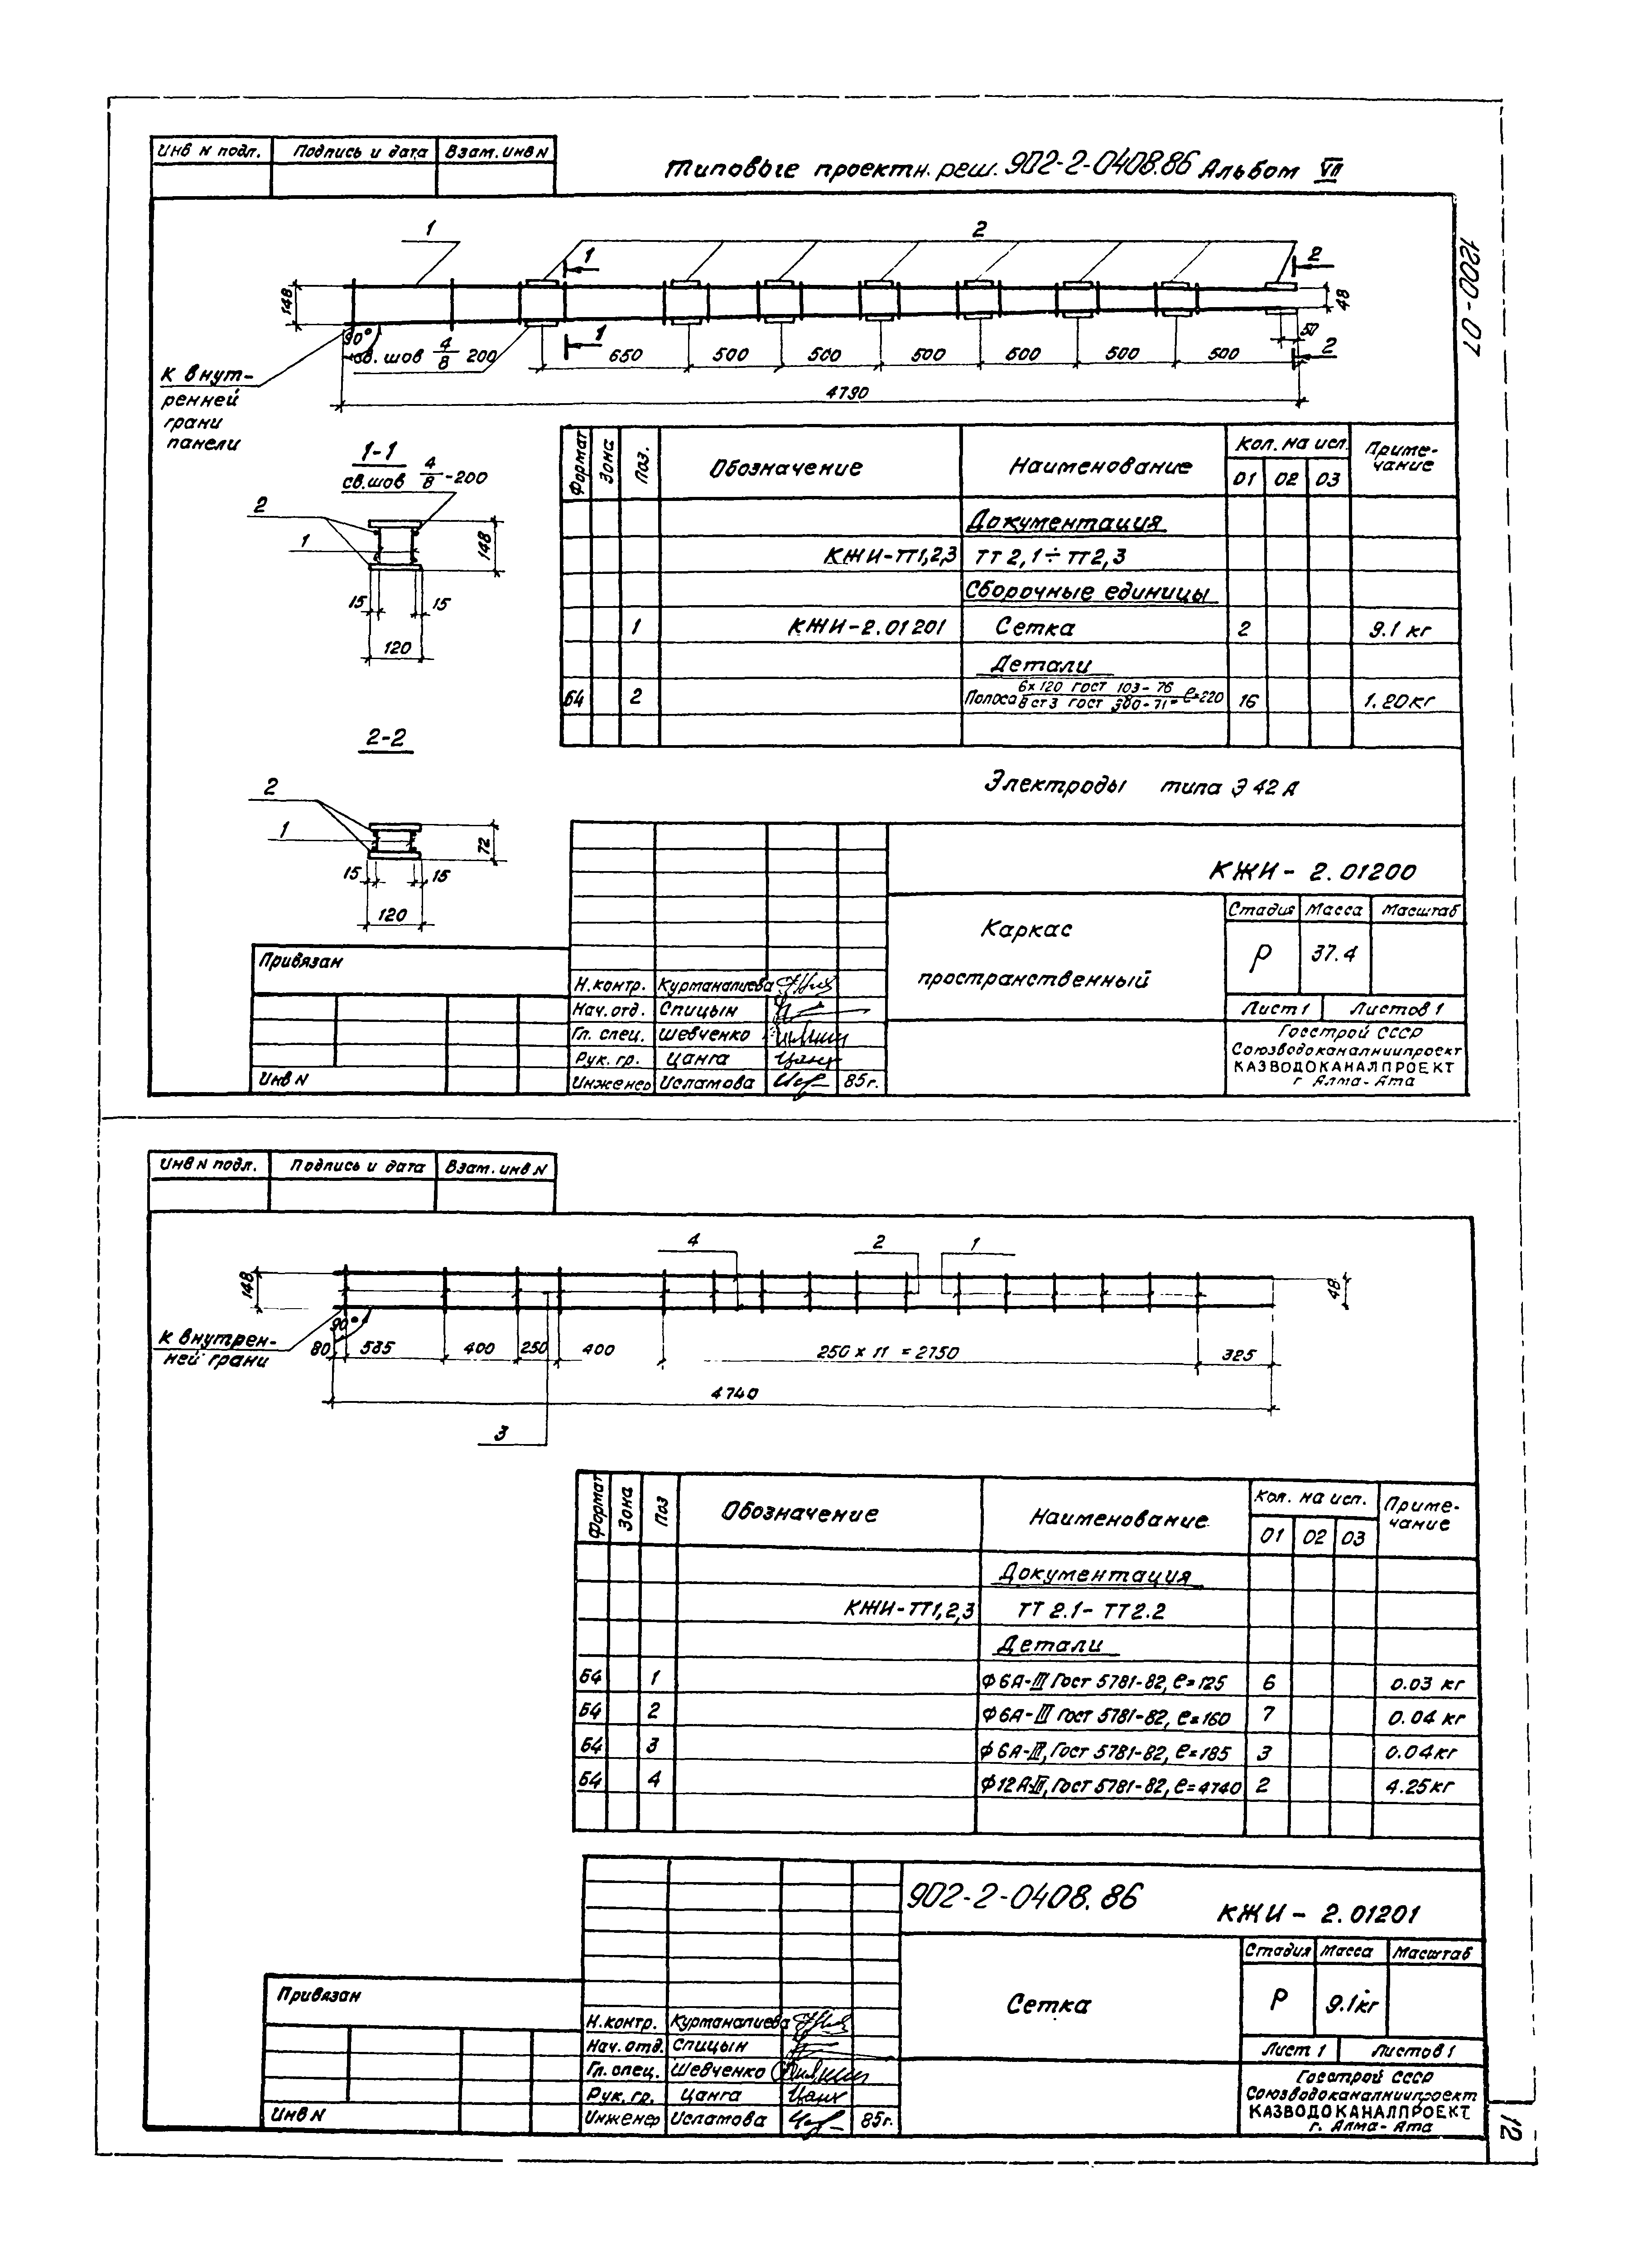 Инв N подл. Подпись и дата Взам. инв N
Типовые проектн. реш. 902-2-0408.86 Альбом VII
1200-07
1
2
1
2
148
48
90°
св. шов 4/8 200
1
50
2
650 500 500 500 500 500 500
4790
К внут-
ренней
грани
панели
1-1
св. шов 4/8-200
2
1
148
15 15
120
2-2
2
1
72
15 15
120
Формат Зона Поз. Обозначение Наименование Кол. на исп. Приме-
чание
01 02 03
Документация
КЖИ-ТТ1,2,3 ТТ 2,1÷ТТ2,3
Сборочные единицы
1 КЖИ-2.01201 Сетка 2 9.1 кг
Детали
Б4 2 Полоса 6х120 ГОСТ 103-76 / Вст3 ГОСТ 380-71* ℓ=220 16 1.20кг
Электроды типа Э42А
КЖИ-2.01200
Каркас
пространственный
Стадия Масса Масштаб
Р 37.4
Лист 1 Листов 1
Госстрой СССР
Союзводоканалниипроект
КАЗВОДОКАНАЛПРОЕКТ
г Алма-Ата
Привязан
Инв N
Н.контр. Курманалиева
Нач.отд. Спицын
Гл. спец. Шевченко
Рук. гр. Цанга
Инженер Исламова 85г.
Инв N подл. Подпись и дата Взам. инв N
4 2 1
148
48
90°
К внутрен-
ней грани
80 535 400 250 400 250 х 11 = 2750 325
4740
3
Формат Зона Поз Обозначение Наименование Кол. на исп. Приме-
чание
01 02 03
Документация
КЖИ-ТТ1,2,3 ТТ 2.1-ТТ2.2
Детали
Б4 1 Ф6А-III Гост 5781-82, ℓ=125 6 0.03 кг
Б4 2 Ф6А-III Гост 5781-82, ℓ=160 7 0.04 кг
Б4 3 Ф6А-III, Гост 5781-82, ℓ=185 3 0.04кг
Б4 4 Ф12А-III, Гост 5781-82, ℓ=4740 2 4.25кг
902-2-0408.86 КЖИ-2.01201
Сетка
Стадия Масса Масштаб
Р 9.1кг
Лист 1 Листов 1
Госстрой СССР
Союзводоканалниипроект
КАЗВОДОКАНАЛПРОЕКТ
г. Алма-Ата
Привязан
Инв N
Н.контр. Курманалиева
Нач. отд. Спицын
Гл. спец. Шевченко
Рук. гр. Цанга
Инженер Исламова 85г.
12